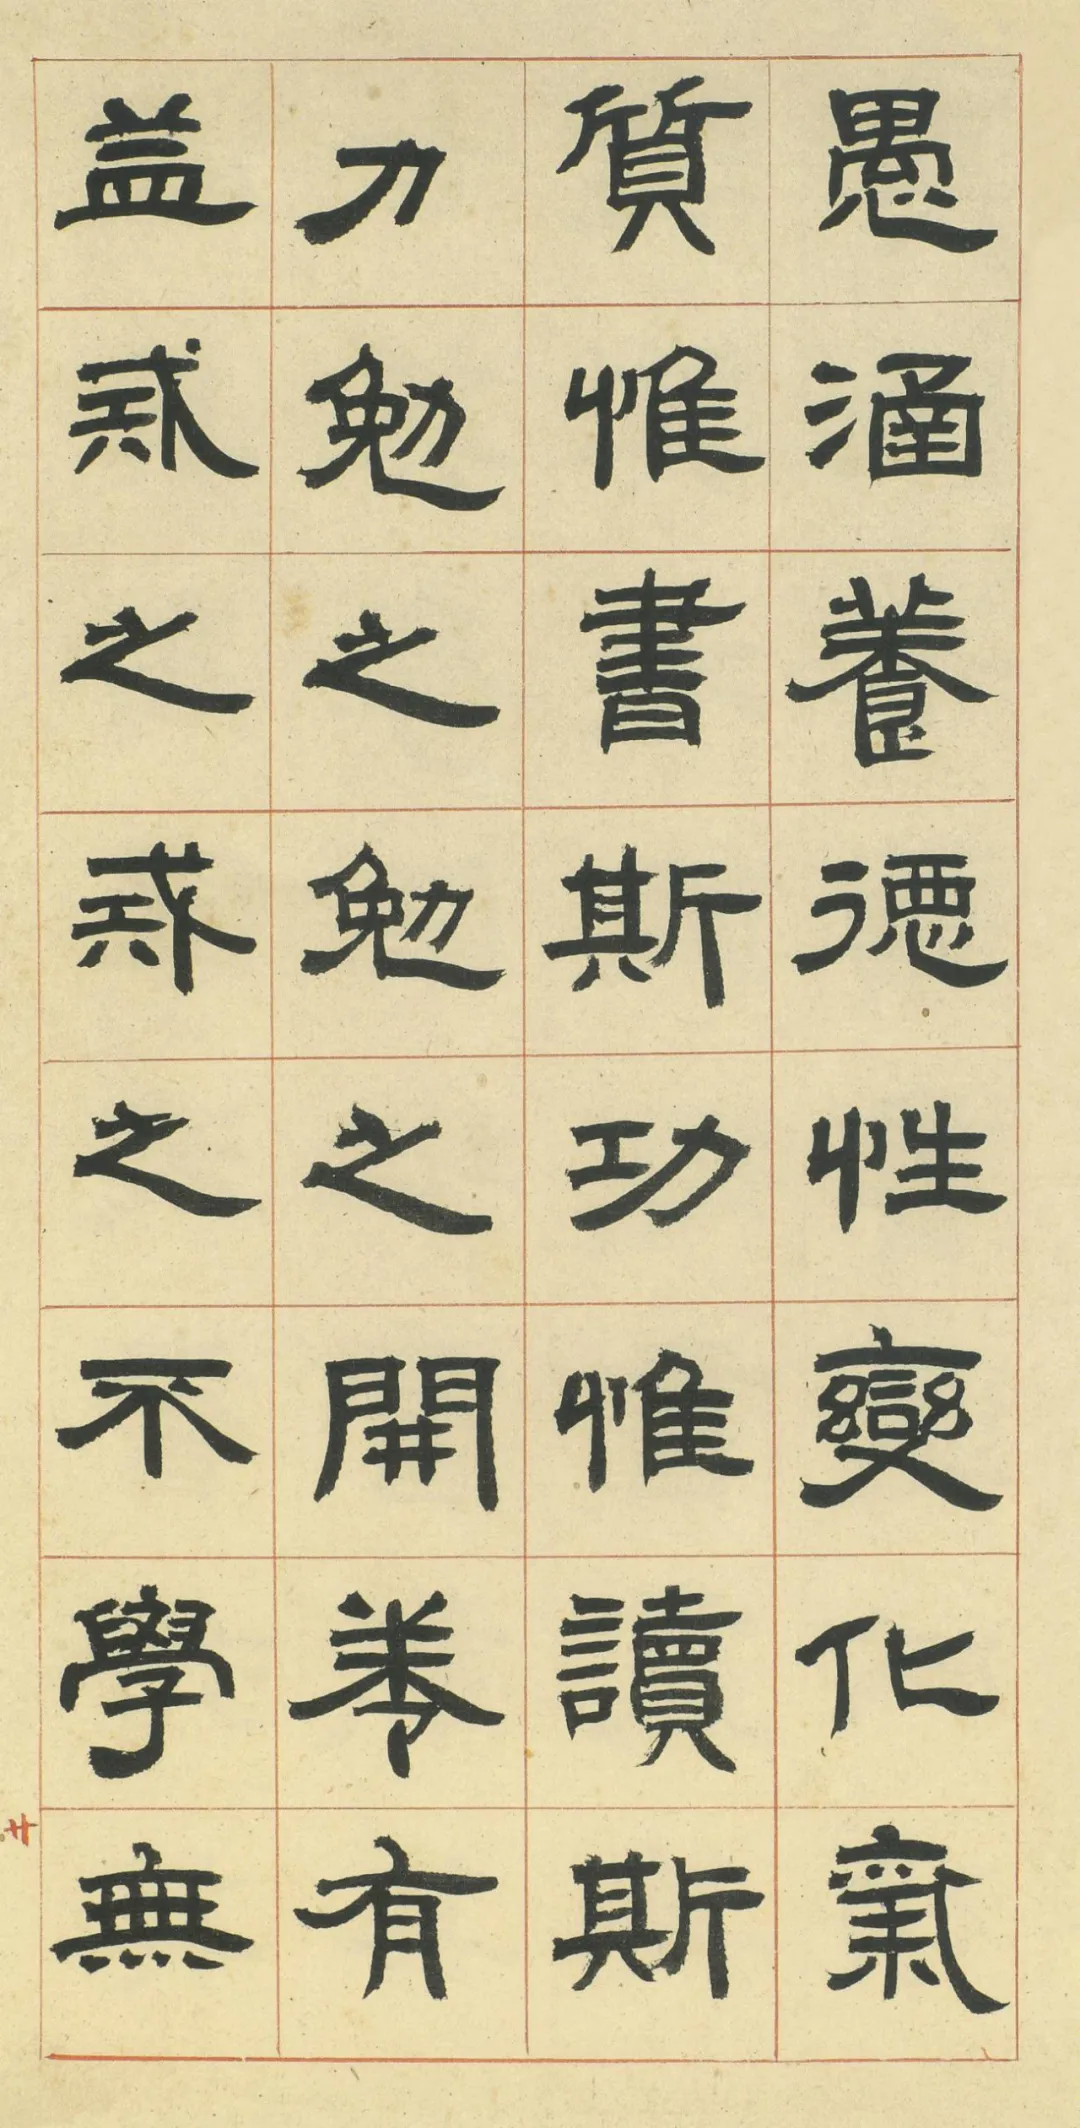 愚涵養德性變化氣
質惟書斯功惟讀斯
力勉之勉之開卷有
益戒之戒之不學無